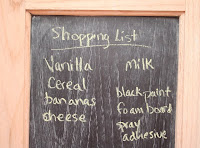 Shopping List
Vanilla
Cereal
bananas
cheese
milk
black paint
foam board
spray
adhesive